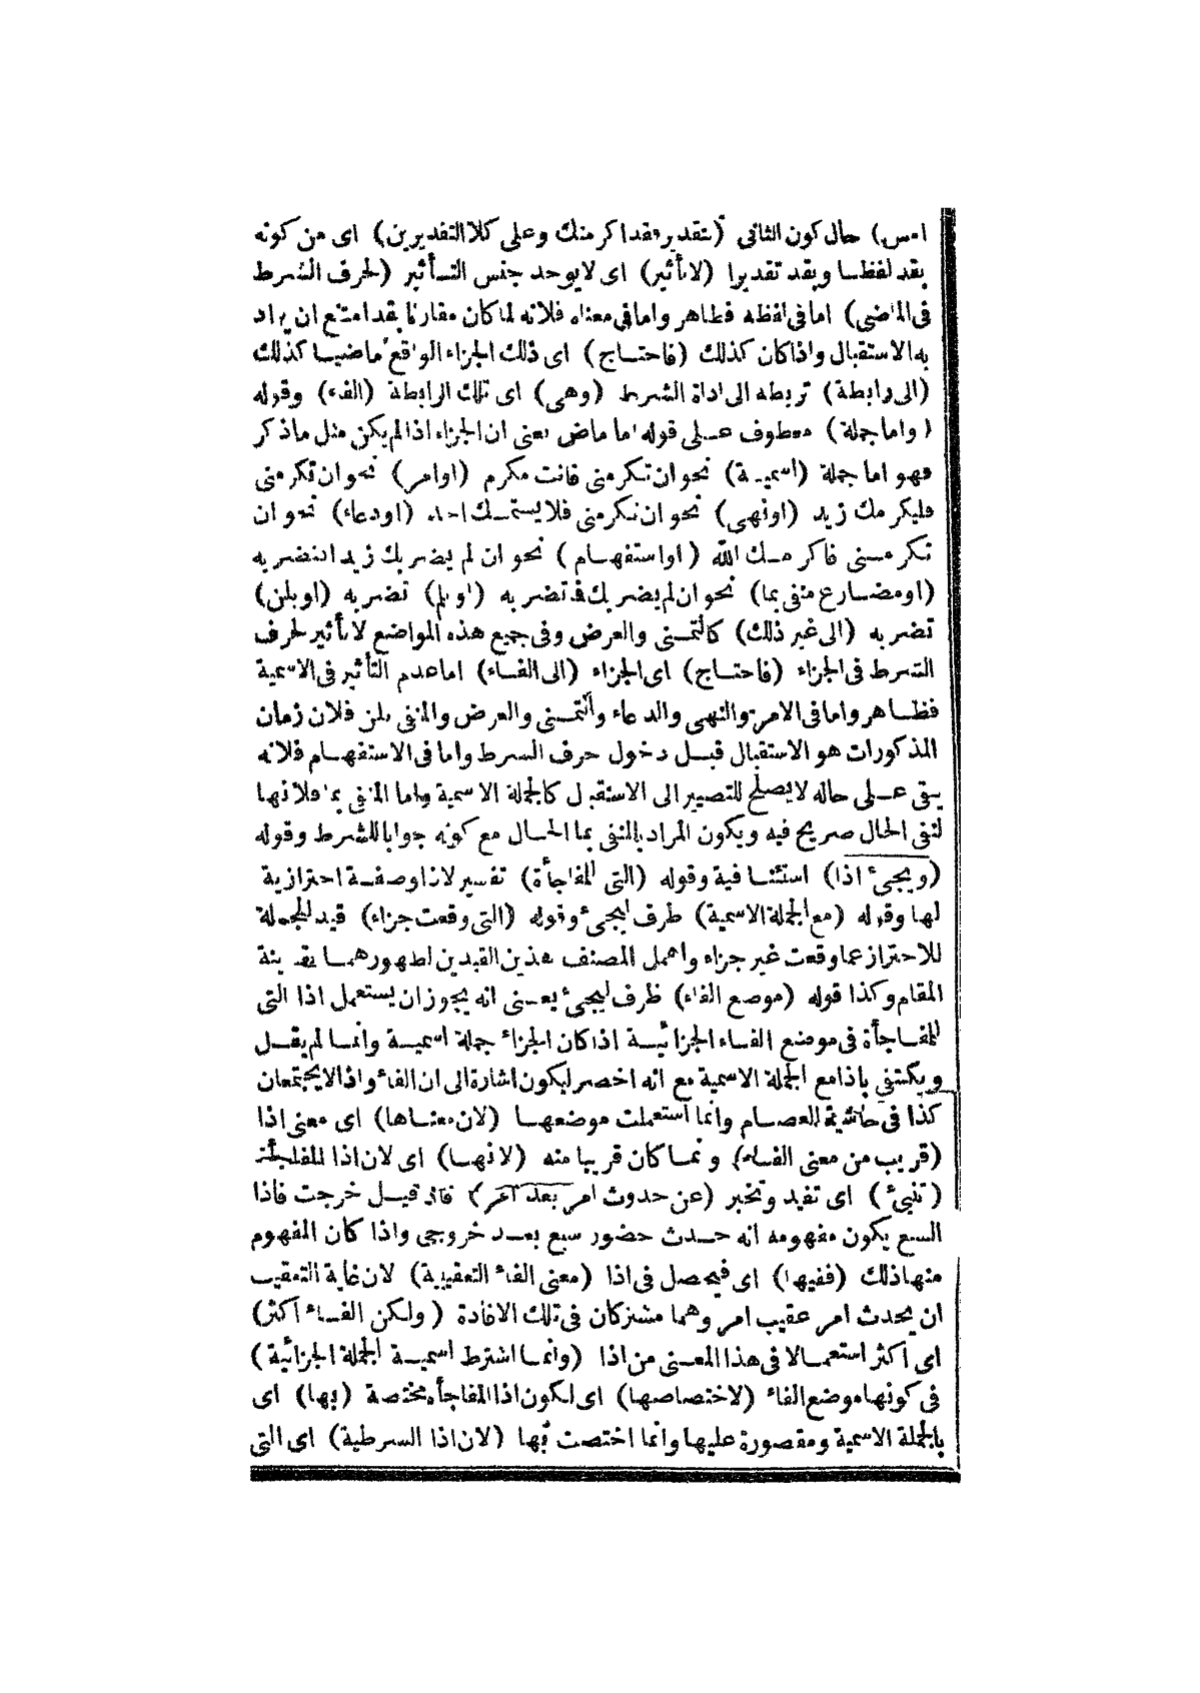 امس) حال كون الثانى (بتقدير فقد اكرمتك وعلى كلا التقديرين) اى من كونه
بقد لفظا وبقد تقديرا (لا تأثير) اى لا يوجد جنس التأثير (لحرف الشرط
فى الماضى) اما فى لفظه فظاهر واما فى معناه فلانه لما كان مقارنا بقد امتنع ان يراد
به الاستقبال واذا كان كذلك (فاحتاج) اى ذلك الجزاء الواقع ماضيا كذلك
(الى رابطة) تربطه الى اداة الشرط (وهى) اى تلك الرابطة (الفاء) وقوله
(واما جملة) معطوف على قوله اما ماض يعنى ان الجزاء اذا لم يكن مثل ما ذكر
فهو اما جملة (اسمية) نحو ان تكرمنى فانت مكرم (او امر) نحو ان تكرمنى
فليكرمك زيد (او نهى) نحو ان تكرمنى فلا يشتمك احد (او دعاء) نحو ان
تكرمنى فاكرمك الله (او استفهام) نحو ان لم يضربك زيد اتضربه
(او مضارع منفى بما) نحو ان لم يضربك فما تضربه (او بلم) تضربه (او بلن)
تضربه (الى غير ذلك) كالتمنى والعرض وفى جميع هذه المواضع لا تأثير لحرف
الشرط فى الجزاء (فاحتاج) اى الجزاء (الى الفاء) اما عدم التأثير فى الاسمية
فظاهر واما فى الامر والنهى والدعاء والتمنى والعرض والمنفى بلن فلان زمان
المذكورات هو الاستقبال قبل دخول حرف الشرط واما فى الاستفهام فلانه
يبقى على حاله لا يصلح للتصيير الى الاستقبال كالجملة الاسمية واما المنفى بما فلانها
لنفى الحال صريح فيه ويكون المراد بالمنفى بما الحال مع كونه جوابا للشرط وقوله
(ويجئ اذا) استئنافية وقوله (التى للمفاجأة) تفسير لاذا وصفة احترازية
لها وقوله (مع الجملة الاسمية) ظرف ليجئ وقوله (التى وقعت جزاء) قيد للجملة
للاحتراز عما وقعت غير جزاء واهمل المصنف هذين القيدين لظهورهما بقرينة
المقام وكذا قوله (موضع الفاء) ظرف ليجئ يعنى انه يجوز ان يستعمل اذا التى
للمفاجأة فى موضع الفاء الجزائية اذا كان الجزاء جملة اسمية وانما لم يقل
ويكتفى باذا مع الجملة الاسمية مع انه اخصر ليكون اشارة الى ان الفاء واذا لا يجتمعان
كذا فى حاشية العصام وانما استعملت موضعها (لان معناها) اى معنى اذا
(قريب من معنى الفاء) وانما كان قريبا منه (لانها) اى لان اذا للمفاجأة
(تنبئ) اى تفيد وتخبر (عن حدوث امر بعد آخر) فاذا قيل خرجت فاذا
السبع يكون مفهومه انه حدث حضور سبع بعد خروجى واذا كان المفهوم
منها ذلك (ففيها) اى فيحصل فى اذا (معنى الفاء التعقيبية) لان غاية التعقيب
ان يحدث امر عقيب امر وهما مشتركان فى تلك الافادة (ولكن الفاء اكثر)
اى اكثر استعمالا فى هذا المعنى من اذا (وانما اشترط اسمية الجملة الجزائية)
فى كونها موضع الفاء (لاختصاصها) اى لكون اذا المفاجأه مختصة (بها) اى
بالجملة الاسمية ومقصورة عليها وانما اختصت بها (لان اذا الشرطية) اى التى